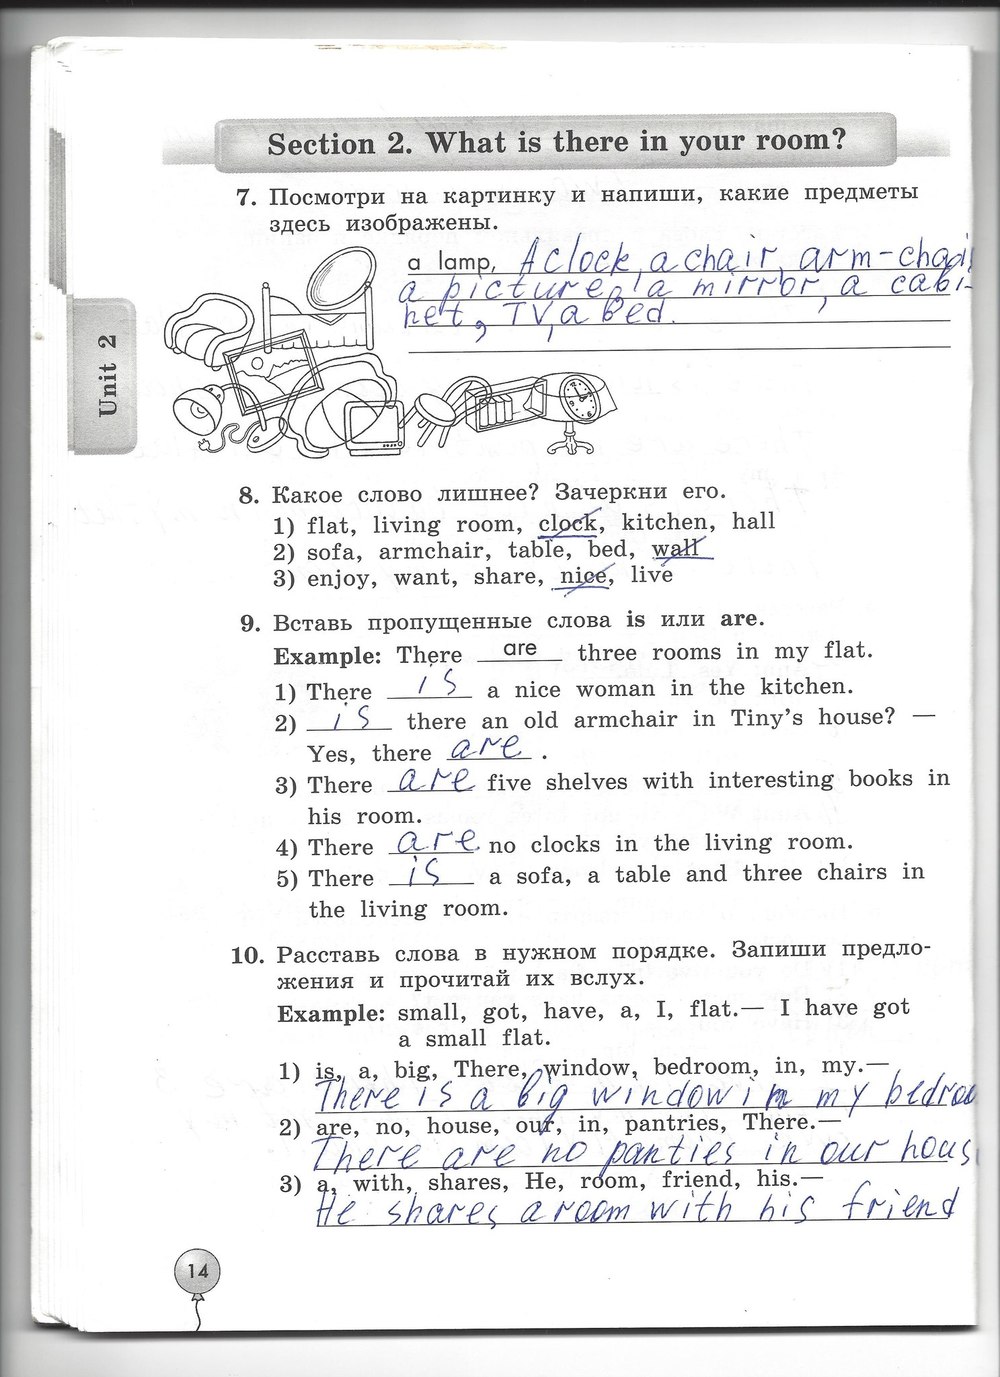 Section 2. What is there in your room?
7. Посмотри на картинку и напиши, какие предметы
здесь изображены.
a lamp, A clock, a chair, arm-chair
a picture, a mirror, a cabi-
net, TV, a bed.
Unit 2
8. Какое слово лишнее? Зачеркни его.
1) flat, living room, clock, kitchen, hall
2) sofa, armchair, table, bed, wall
3) enjoy, want, share, nice, live
9. Вставь пропущенные слова is или are.
Example: There are three rooms in my flat.
1) There is a nice woman in the kitchen.
2) is there an old armchair in Tiny's house? —
Yes, there are.
3) There are five shelves with interesting books in
his room.
4) There are no clocks in the living room.
5) There is a sofa, a table and three chairs in
the living room.
10. Расставь слова в нужном порядке. Запиши предло-
жения и прочитай их вслух.
Example: small, got, have, a, I, flat.— I have got
a small flat.
1) is, a, big, There, window, bedroom, in, my.—
There is a big window in my bedroo
2) are, no, house, our, in, pantries, There.—
There are no panties in our hous
3) a, with, shares, He, room, friend, his.—
He shares a room with his friend
14